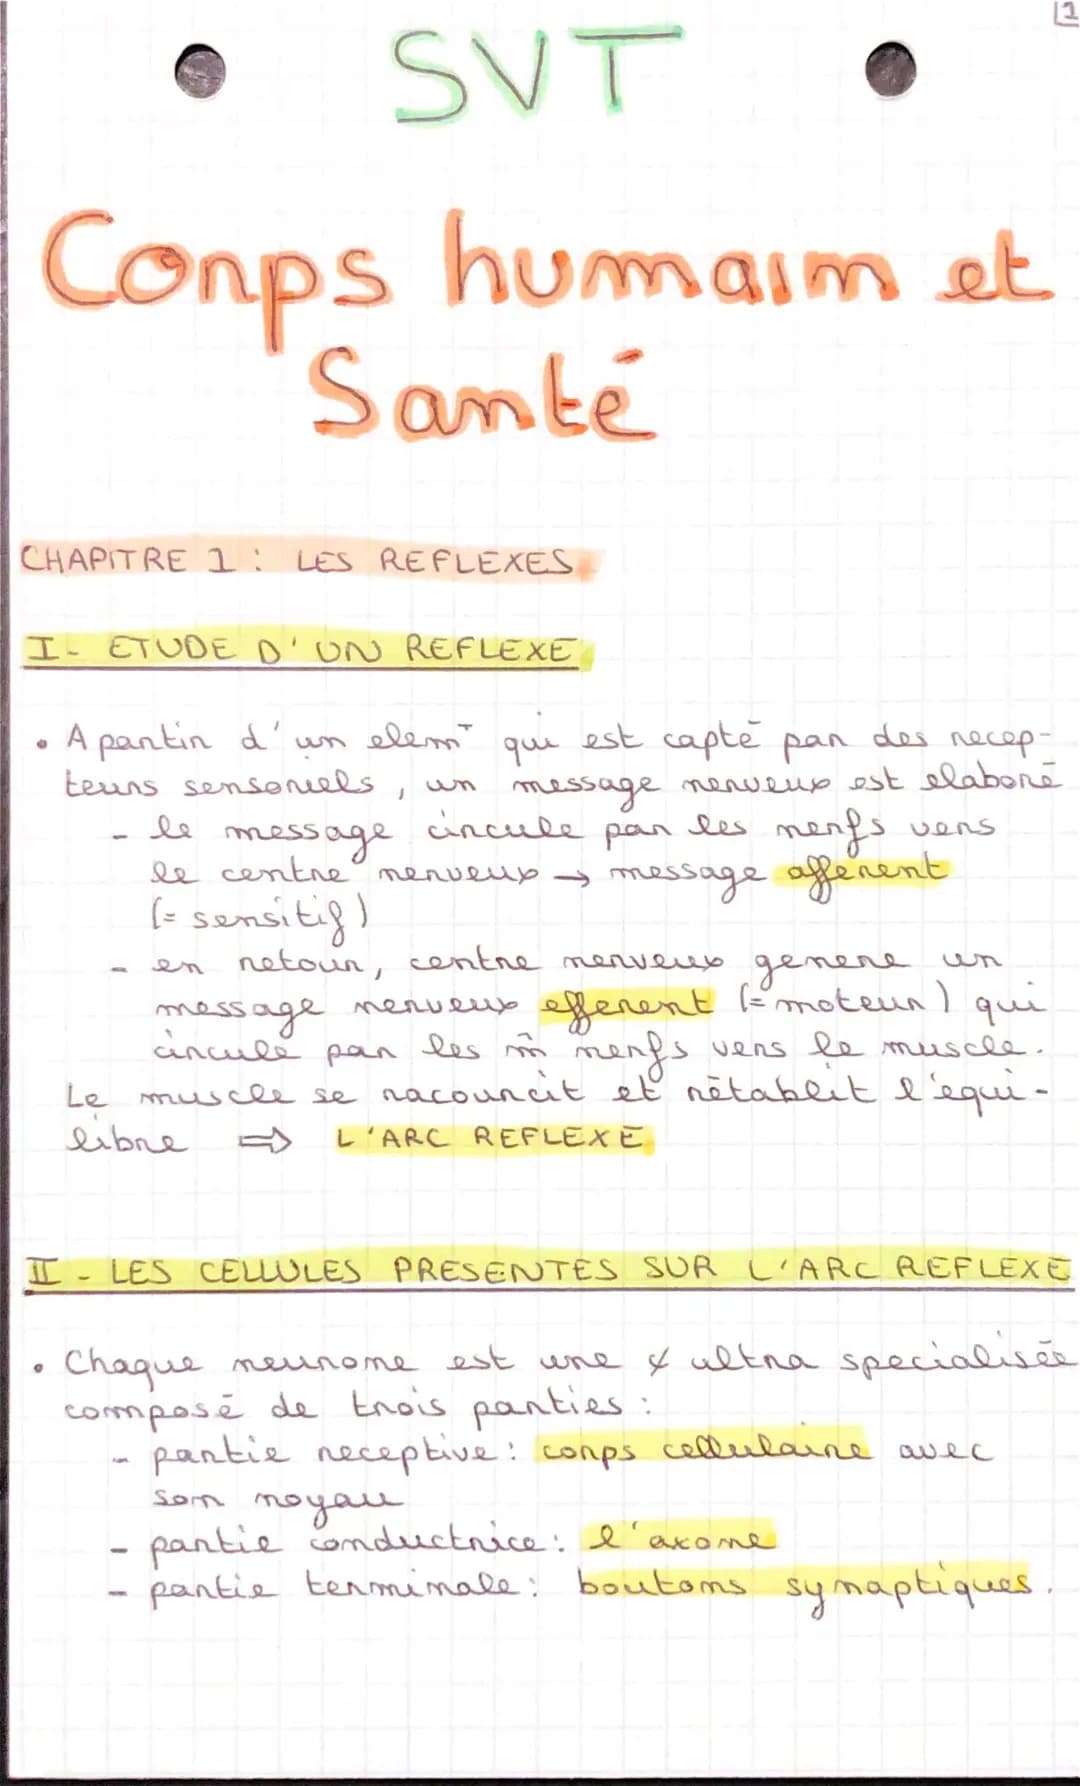 1
SVT
Corps humain et
Santé
CHAPITRE 1 : LES REFLEXES
I - ETUDE D'UN REFLEXE
• A partir d'un elemt qui est capté par des recep-
teurs sensoriels, un message nerveux est elaboré
- le message circule par les nerfs vers
le centre nerveux → message afferent
(= sensitif)
- en retour, centre nerveux genere un
message nerveux efferent (= moteur) qui
circule par les m̂ nerfs vers le muscle.
Le muscle se racourcit et rétablit l'équi-
libre ⇒ L'ARC REFLEXE
II - LES CELLULES PRESENTES SUR L'ARC REFLEXE
• Chaque neurone est une ¢ ultra specialisée
composé de trois parties :
- partie receptive : corps cellulaire avec
son noyau
- partie conductrice : l'axone
- partie terminale : boutons synaptiques.